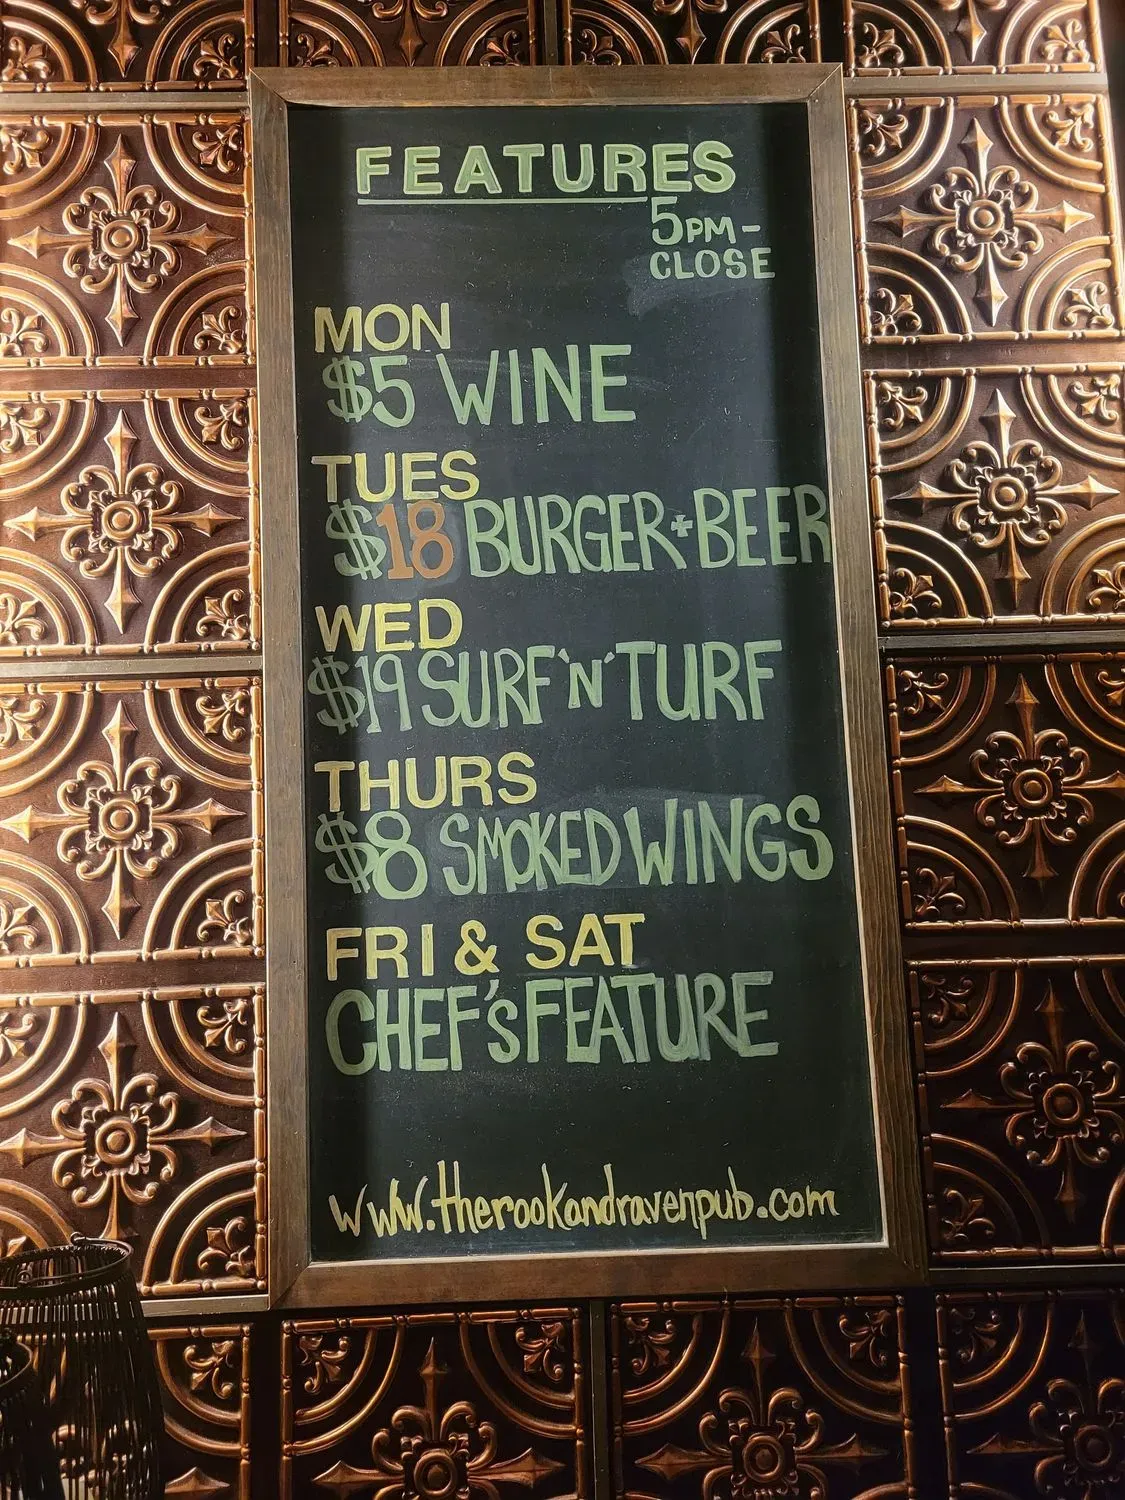 FEATURES
5PM-
CLOSE
MON
$5 WINE
TUES
$18 BURGER+BEER
WED
$19 SURF'N'TURF
THURS
$8 SMOKED WINGS
FRI & SAT
CHEF'S FEATURE
www.therookandravenpub.com